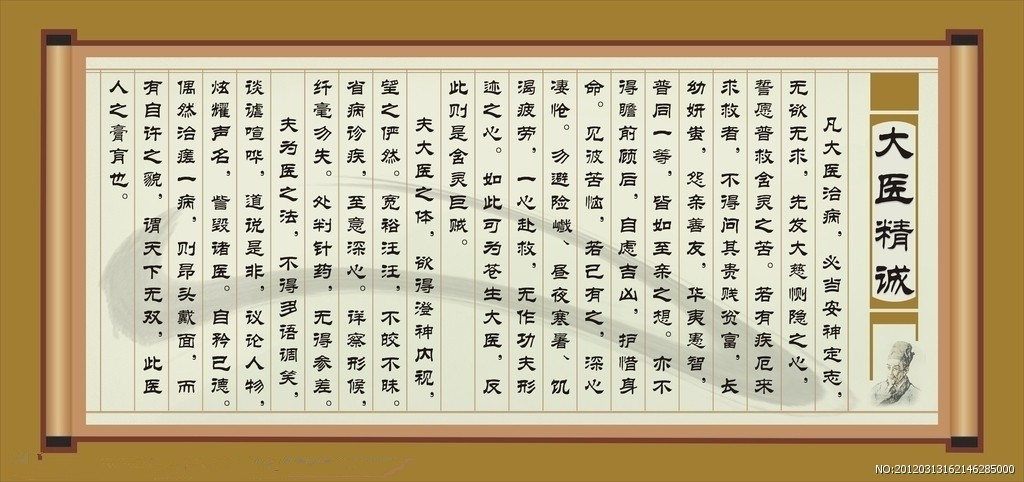 大医精诚
凡大医治病，必当安神定志，
无欲无求，先发大慈恻隐之心，
誓愿普救含灵之苦。若有疾厄来
求救者，不得问其贵贱贫富，长
幼妍蚩，怨亲善友，华夷愚智，
普同一等，皆如至亲之想。亦不
得瞻前顾后，自虑吉凶，护惜身
命。见彼苦恼，若己有之，深心
凄怆。勿避险巇、昼夜寒暑、饥
渴疲劳，一心赴救，无作功夫形
迹之心。如此可为苍生大医，反
此则是含灵巨贼。
夫大医之体，欲得澄神内视，
望之俨然。宽裕汪汪，不皎不昧。
省病诊疾，至意深心。详察形候，
纤毫勿失。处判针药，无得参差。
夫为医之法，不得多语调笑，
谈谑喧哗，道说是非，议论人物，
炫耀声名，訾毁诸医。自矜己德。
偶然治瘥一病，则昂头戴面，而
有自许之貌，谓天下无双，此医
人之膏肓也。
NO:20120313162146285000